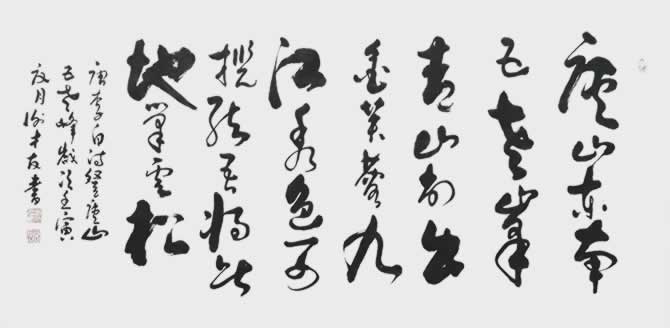 廬山东南
五老峯
青山削出
金芙蓉九
江秀色可
揽结吾将此
地巢雲松
唐李白诗登廬山
五老峰岁次壬寅
夏月谢才友书